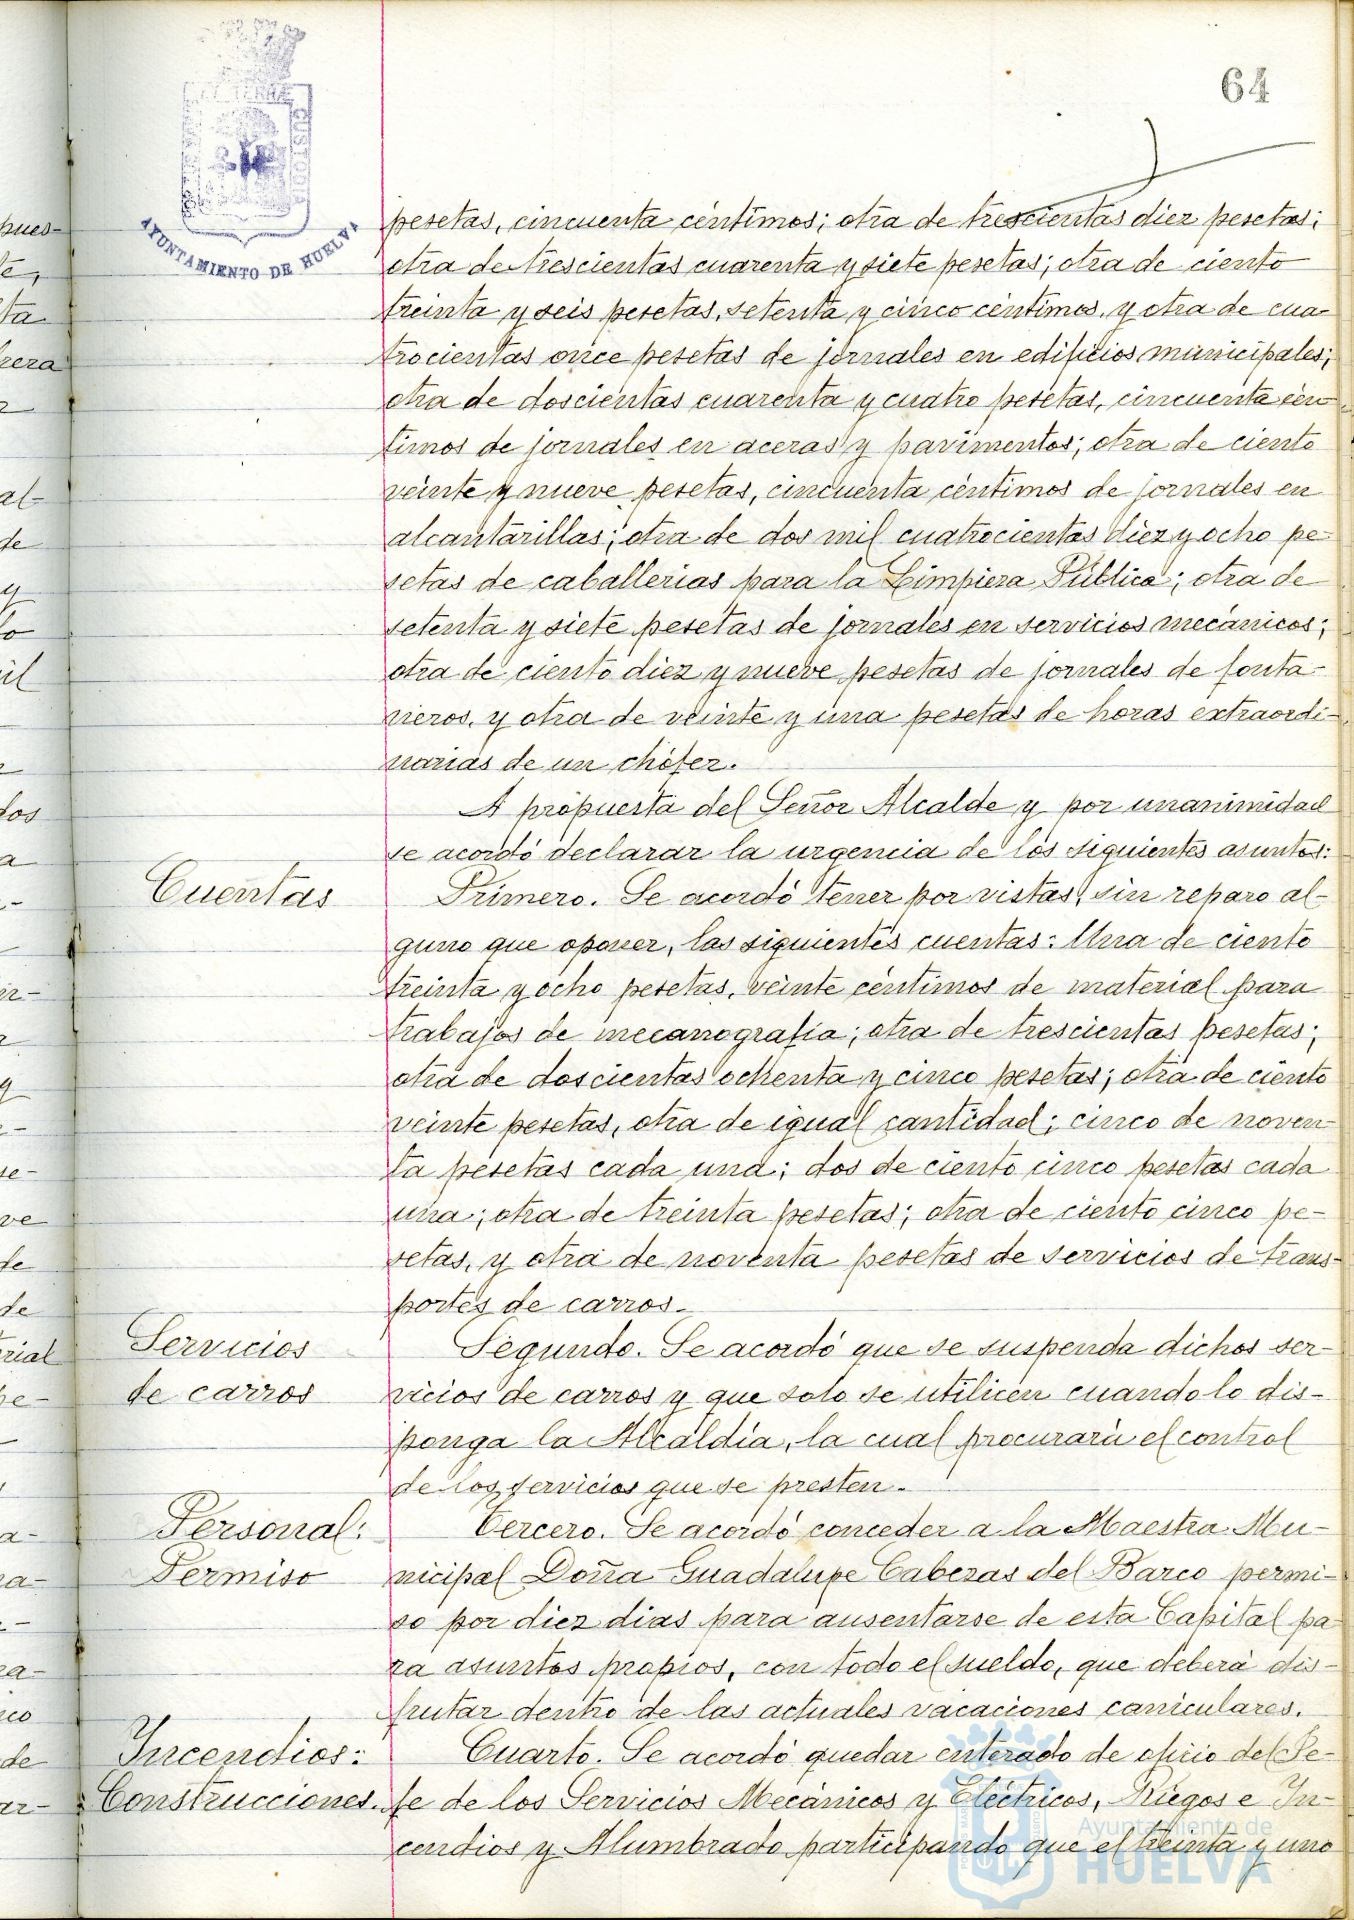 64
PORTUS MARIS ET TERRÆ CUSTODIA
AYUNTAMIENTO DE HUELVA
pesetas, cincuenta céntimos; otra de trescientas diez pesetas;
otra de trescientas cuarenta y siete pesetas; otra de ciento
treinta y seis pesetas, setenta y cinco céntimos, y otra de cua-
trocientas once pesetas de jornales en edificios municipales;
otra de doscientas cuarenta y cuatro pesetas, cincuenta cén-
timos de jornales en aceras y pavimentos; otra de ciento
veinte y nueve pesetas, cincuenta céntimos de jornales en
alcantarillas; otra de dos mil cuatrocientas diez y ocho pe-
setas de caballerias para la Limpieza Pública; otra de
setenta y siete pesetas de jornales en servicios mecánicos;
otra de ciento diez y nueve pesetas de jornales de fonta-
neros, y otra de veinte y una pesetas de horas extraordi-
narias de un chófer.
A propuesta del Señor Alcalde y por unanimidad
se acordó declarar la urgencia de los siguientes asuntos:
Cuentas
Primero. Se acordó tener por vistas, sin reparo al-
guno que oponer, las siguientes cuentas: Una de ciento
treinta y ocho pesetas, veinte céntimos de material para
trabajos de mecanografía; otra de trescientas pesetas;
otra de doscientas ochenta y cinco pesetas; otra de ciento
veinte pesetas, otra de igual cantidad; cinco de noven-
ta pesetas cada una; dos de ciento cinco pesetas cada
una; otra de treinta pesetas; otra de ciento cinco pe-
setas, y otra de noventa pesetas de servicios de trans-
portes de carros.-
Servicios
de carros
Segundo. Se acordó que se suspenda dichos ser-
vicios de carros y que solo se utilicen cuando lo dis-
ponga la Alcaldía, la cual procurará el control
de los servicios que se presten.-
Personal:
Permiso
Tercero. Se acordó conceder a la Maestra Mu-
nicipal Doña Guadalupe Cabezas del Barco permi-
so por diez dias para ausentarse de esta Capital pa-
ra asuntos propios, con todo el sueldo, que deberá dis-
frutar dentro de las actuales vacaciones caniculares.
Incendios:
Construcciones.
Cuarto. Se acordó quedar enterado de oficio del Je-
fe de los Servicios Mecánicos y Eléctricos, Riegos e In-
cendios y Alumbrado participando que el treinta y uno
Ayuntamiento de
HUELVA